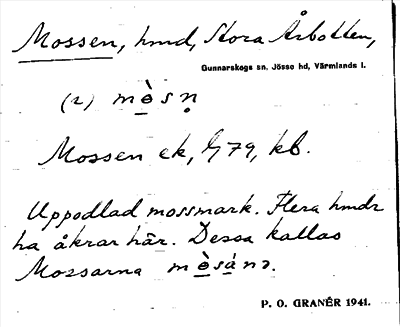 Mossen, hmd, Stora Årbotten,
Gunnarskogs sn, Jösse hd, Värmlands l.
(2) mò̱sṇ
Mossen ek, G79, kb.
Uppodlad mossmark. Flera hmdr
ha åkrar här. Dessa kallas
Mossarna mò̱sánɔ.
P. O. GRANÉR 1941.